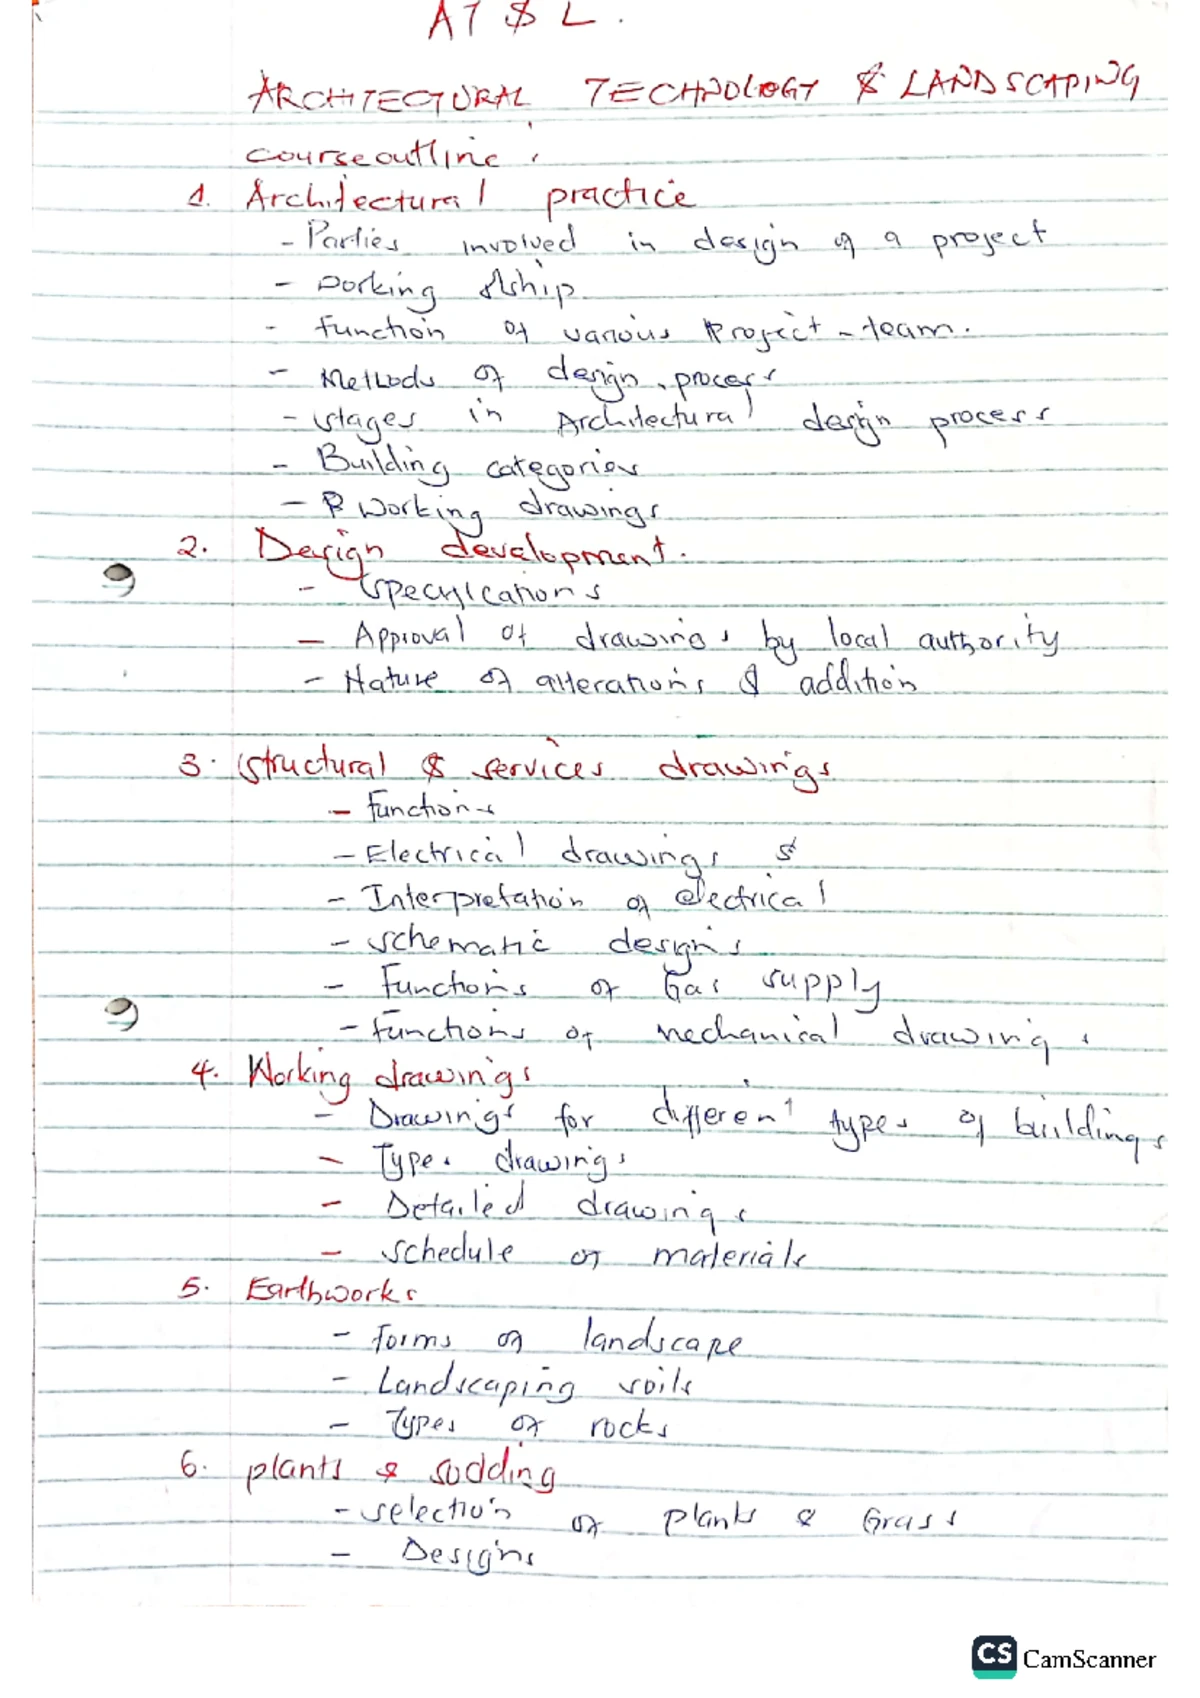 AT & L.
ARCHITECTURAL TECHNOLOGY & LANDSCAPING
course outline.
1. Architectural practice
- Parties involved in design of a project
- Working
- function of various Project-team.
- Methods of design process
- stages in Architectural design process
- Building categories
- Working drawings
2. Design development.
- specifications
- Approval of drawings by local authority
- Nature of alterations & addition
3. structural & services drawings
- functions
- Electrical drawings
- Interpretation of electrical
- schematic designs
- Functions of Gas supply
- functions of mechanical drawings
4. Working drawings
- Drawings for different types of buildings
- Types drawings
- Detailed drawings
- schedule of materials
5. Earthworks
- forms of landscape
- Landscaping soils
- Types of rocks
6. plants & sodding
- selection of plants & Grass
- Designs
CS CamScanner